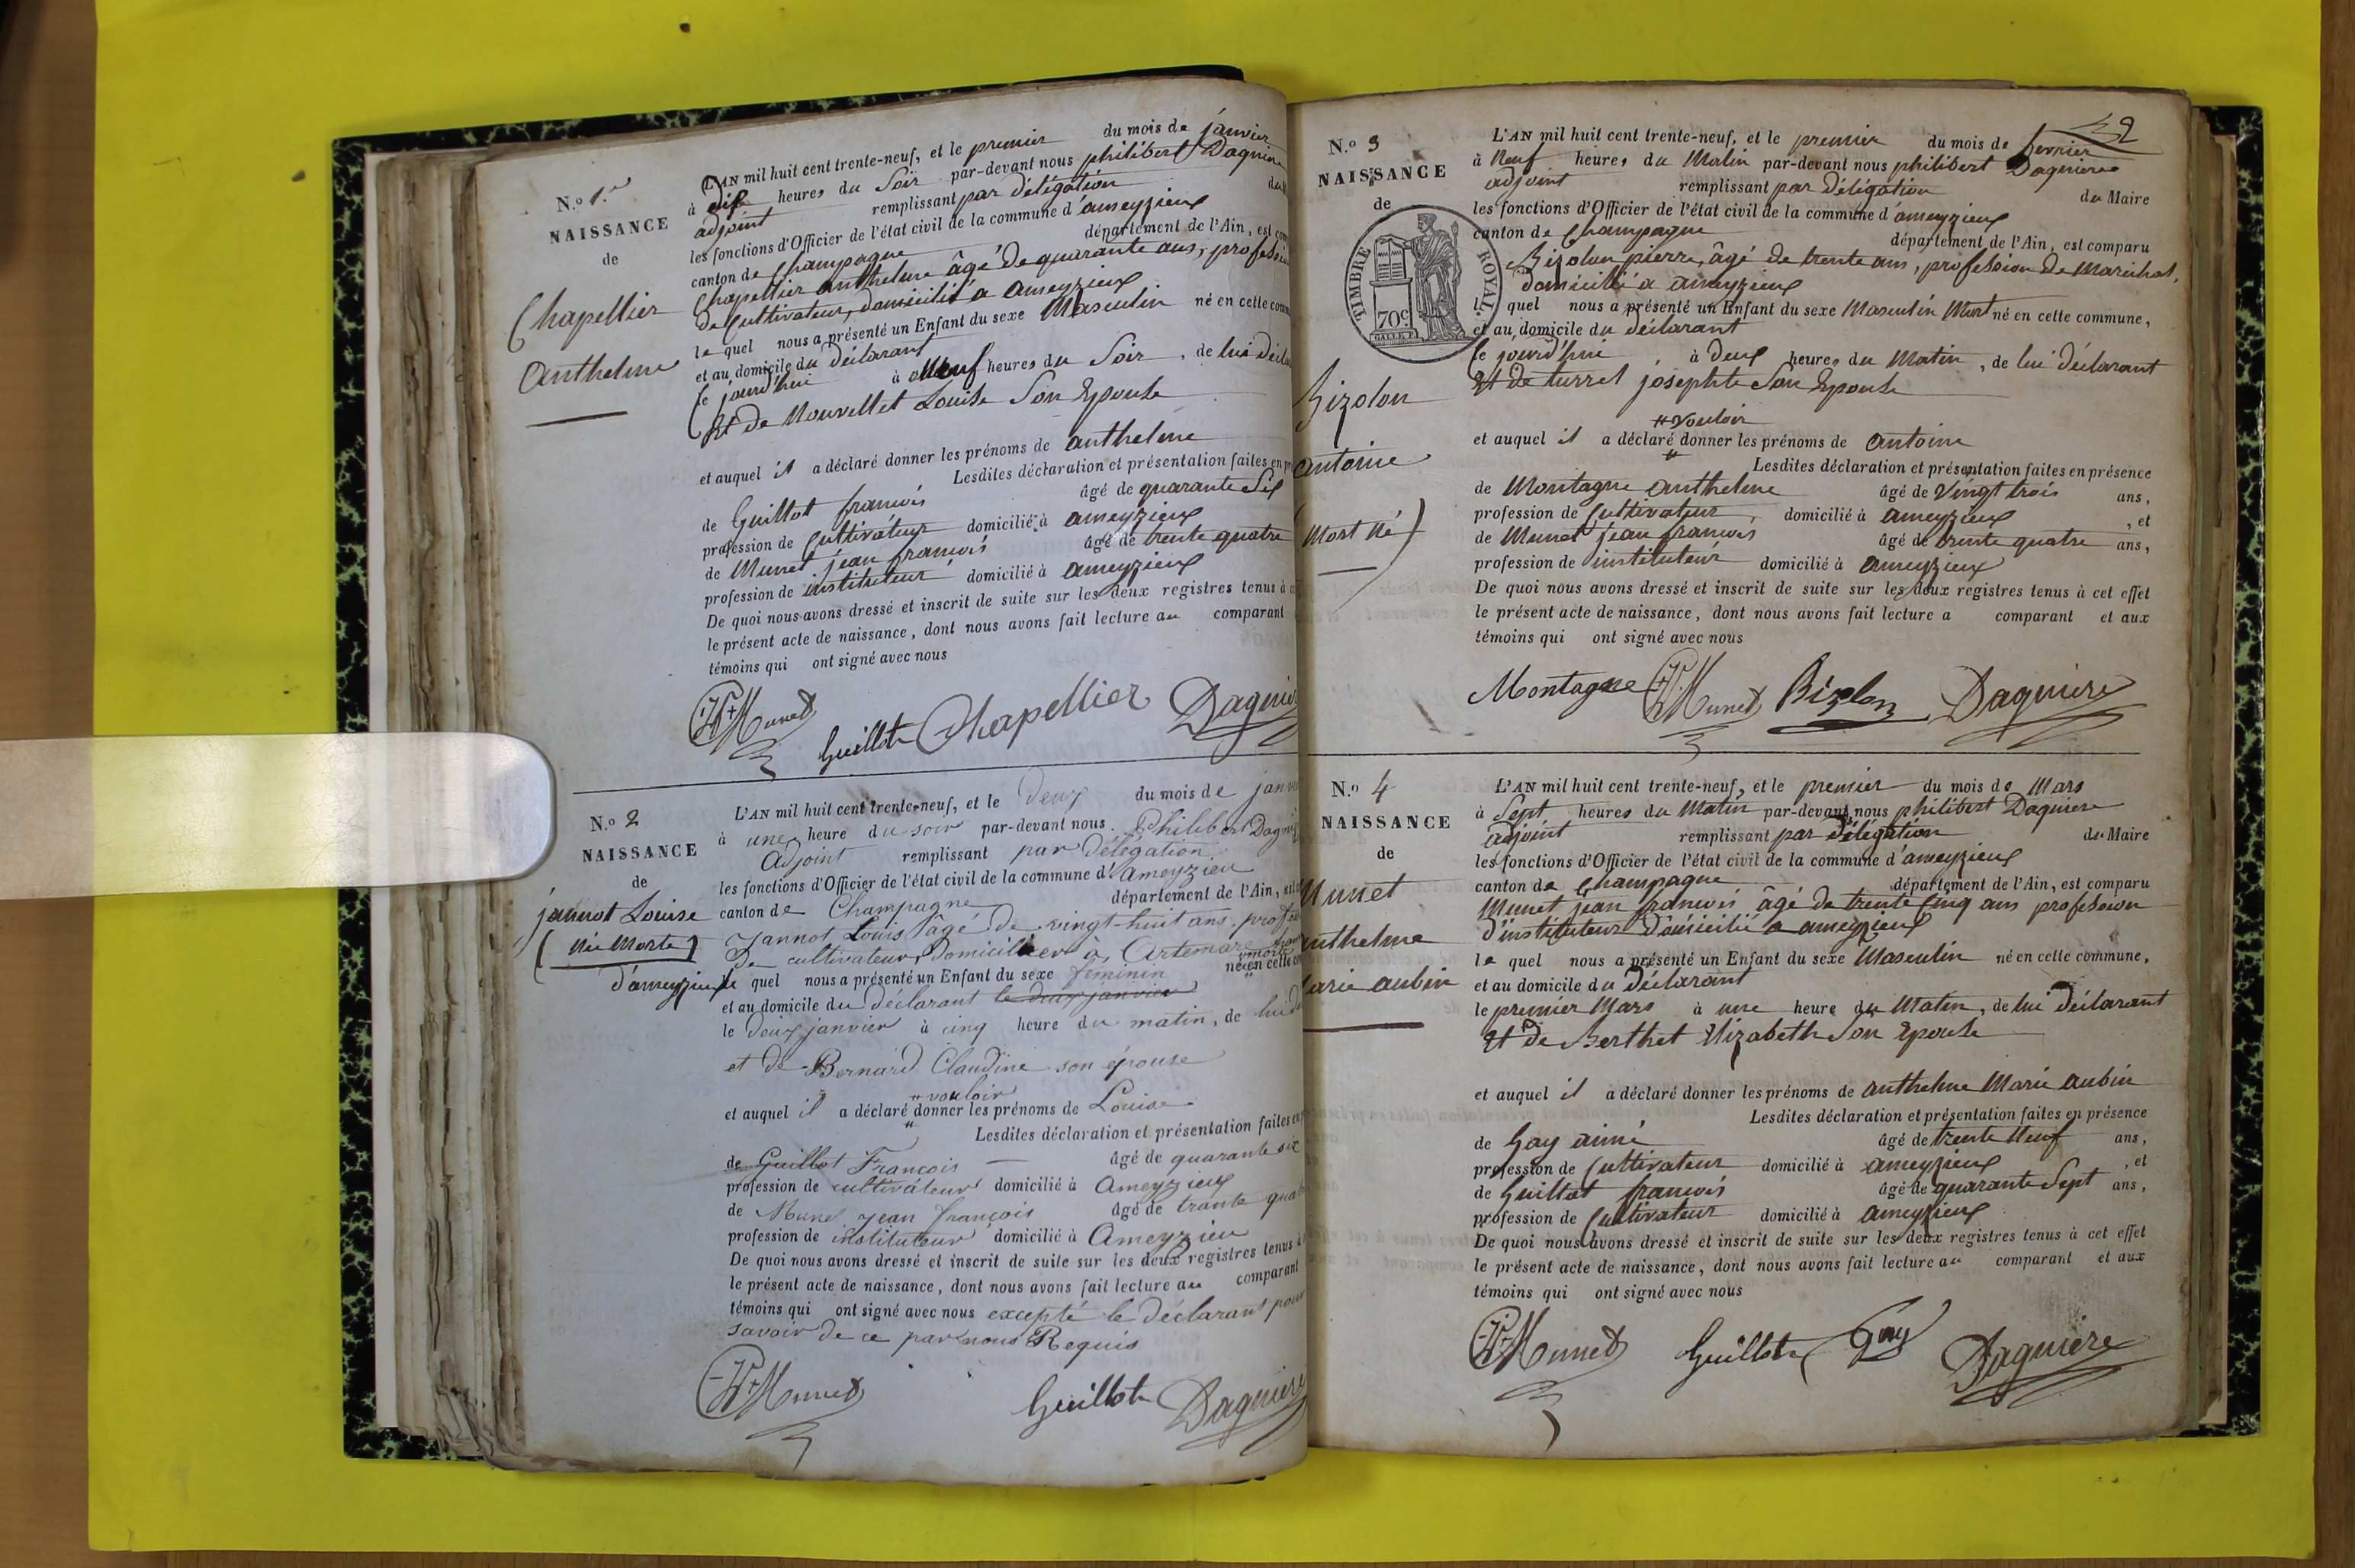 N.o 1.er
NAISSANCE
de
Chapellier
Anthelme
L'AN mil huit cent trente-neuf, et le premier du mois de janvier
à dix heures du Soir par-devant nous philibert Daguiere
adjoint remplissant par délégation du
les fonctions d'Officier de l'état civil de la commune d'ameyzieux
canton de Champagne département de l'Ain, est
Chapellier anthelme âgé de quarante ans, profession
de Cultivateur, domicilié a ameyzieux
le quel nous a présenté un Enfant du sexe Masculin né en cette
et au domicile du déclarant
le jourd'hui à Neuf heures du Soir, de lui
Et de Mouvellet Louise Son Epouse
et auquel il a déclaré donner les prénoms de anthelme
Lesdites déclaration et présentation faites en
de Guillot francois âgé de quarante Six
profession de Cultivateur domicilié à ameyzieux
de Munet jean francois âgé de trente quatre
profession de instituteur domicilié à ameyzieux
De quoi nous avons dressé et inscrit de suite sur les deux registres tenus à
le présent acte de naissance, dont nous avons fait lecture au comparant
témoins qui ont signé avec nous
Munet Guillot Chapellier Daguiere
N.o 2
NAISSANCE
de
jannot Louise
(Née Morte)
d'ameyzieux
L'AN mil huit cent trente-neuf, et le deux du mois de
à une heure du soir par-devant nous Philibert
Adjoint remplissant par délégation
les fonctions d'Officier de l'état civil de la commune d'Ameyzieu
canton de Champagne département de l'Ain,
Jannot Louis âgé de vingt-huit ans,
De cultivateur, domicilier à Artemare
le quel nous a présenté un Enfant du sexe féminin morte né en cette
et au domicile du déclarant le deux janvier
le deux janvier à cinq heure du matin, de lui
et de Bernard Claudine son épouse
" vouloir
et auquel il a déclaré donner les prénoms de Louise
Lesdites déclaration et présentation faites
de Guillot François âgé de quarante six
profession de cultivateur domicilié à Ameyzieux
de Munet jean françois âgé de trante
profession de instituteur domicilié à Ameyzieu
De quoi nous avons dressé et inscrit de suite sur les deux registres tenus
le présent acte de naissance, dont nous avons fait lecture au comparant
témoins qui ont signé avec nous excepté le déclarant pour
savoir de ce par nous Requis
Munet Guillot Daguiere
N.o 3
NAISSANCE
de
TIMBRE ROYAL.
70c
Bizolon
Antoine
(Mort Né)
32
L'AN mil huit cent trente-neuf, et le premier du mois de fevrier
à Neuf heures du Matin par-devant nous philibert Daguiere
adjoint remplissant par délégation du Maire
les fonctions d'Officier de l'état civil de la commune d'ameyzieux
canton de Champagne département de l'Ain, est comparu
Bizolon pierre, âgé de trente ans, profession de Marechal,
domicilié a ameyzieux
le quel nous a présenté un Enfant du sexe Masculin Mort né en cette commune,
et au domicile du déclarant
le jourd'hui, à deux heures du Matin, de lui déclarant
Et de turrel josephte Son Epouse
" vouloir
et auquel il a déclaré donner les prénoms de antoine
Lesdites déclaration et présentation faites en présence
de Montagne anthelme âgé de Vingt trois ans,
profession de Cultivateur domicilié à ameyzieux, et
de Munet jean francois âgé de trente quatre ans,
profession de instituteur domicilié à ameyzieux
De quoi nous avons dressé et inscrit de suite sur les deux registres tenus à cet effet
le présent acte de naissance, dont nous avons fait lecture a comparant et aux
témoins qui ont signé avec nous
Montagne Munet Bizolon Daguiere
N.o 4
NAISSANCE
de
Munet
anthelme
Marie aubin
L'AN mil huit cent trente-neuf, et le premier du mois de Mars
à Sept heures du Matin par-devant nous philibert Daguiere
adjoint remplissant par délégation du Maire
les fonctions d'Officier de l'état civil de la commune d'ameyzieux
canton de Champagne département de l'Ain, est comparu
Munet jean francois âgé de trente Cinq ans profession
d'instituteur Domicilié a ameyzieux
le quel nous a présenté un Enfant du sexe Masculin né en cette commune,
et au domicile du déclarant
le premier Mars à une heure du Matin, de lui déclarant
Et de Berthet Elizabeth Son Epouse
et auquel il a déclaré donner les prénoms de anthelme Marie aubin
Lesdites déclaration et présentation faites en présence
de Gay aimé âgé de trente Neuf ans,
profession de Cultivateur domicilié à ameyzieux, et
de Guillot francois âgé de quarante Sept ans,
profession de Cultivateur domicilié à ameyzieux
De quoi nous avons dressé et inscrit de suite sur les deux registres tenus à cet effet
le présent acte de naissance, dont nous avons fait lecture au comparant et aux
témoins qui ont signé avec nous
Munet Guillot Gay Daguiere